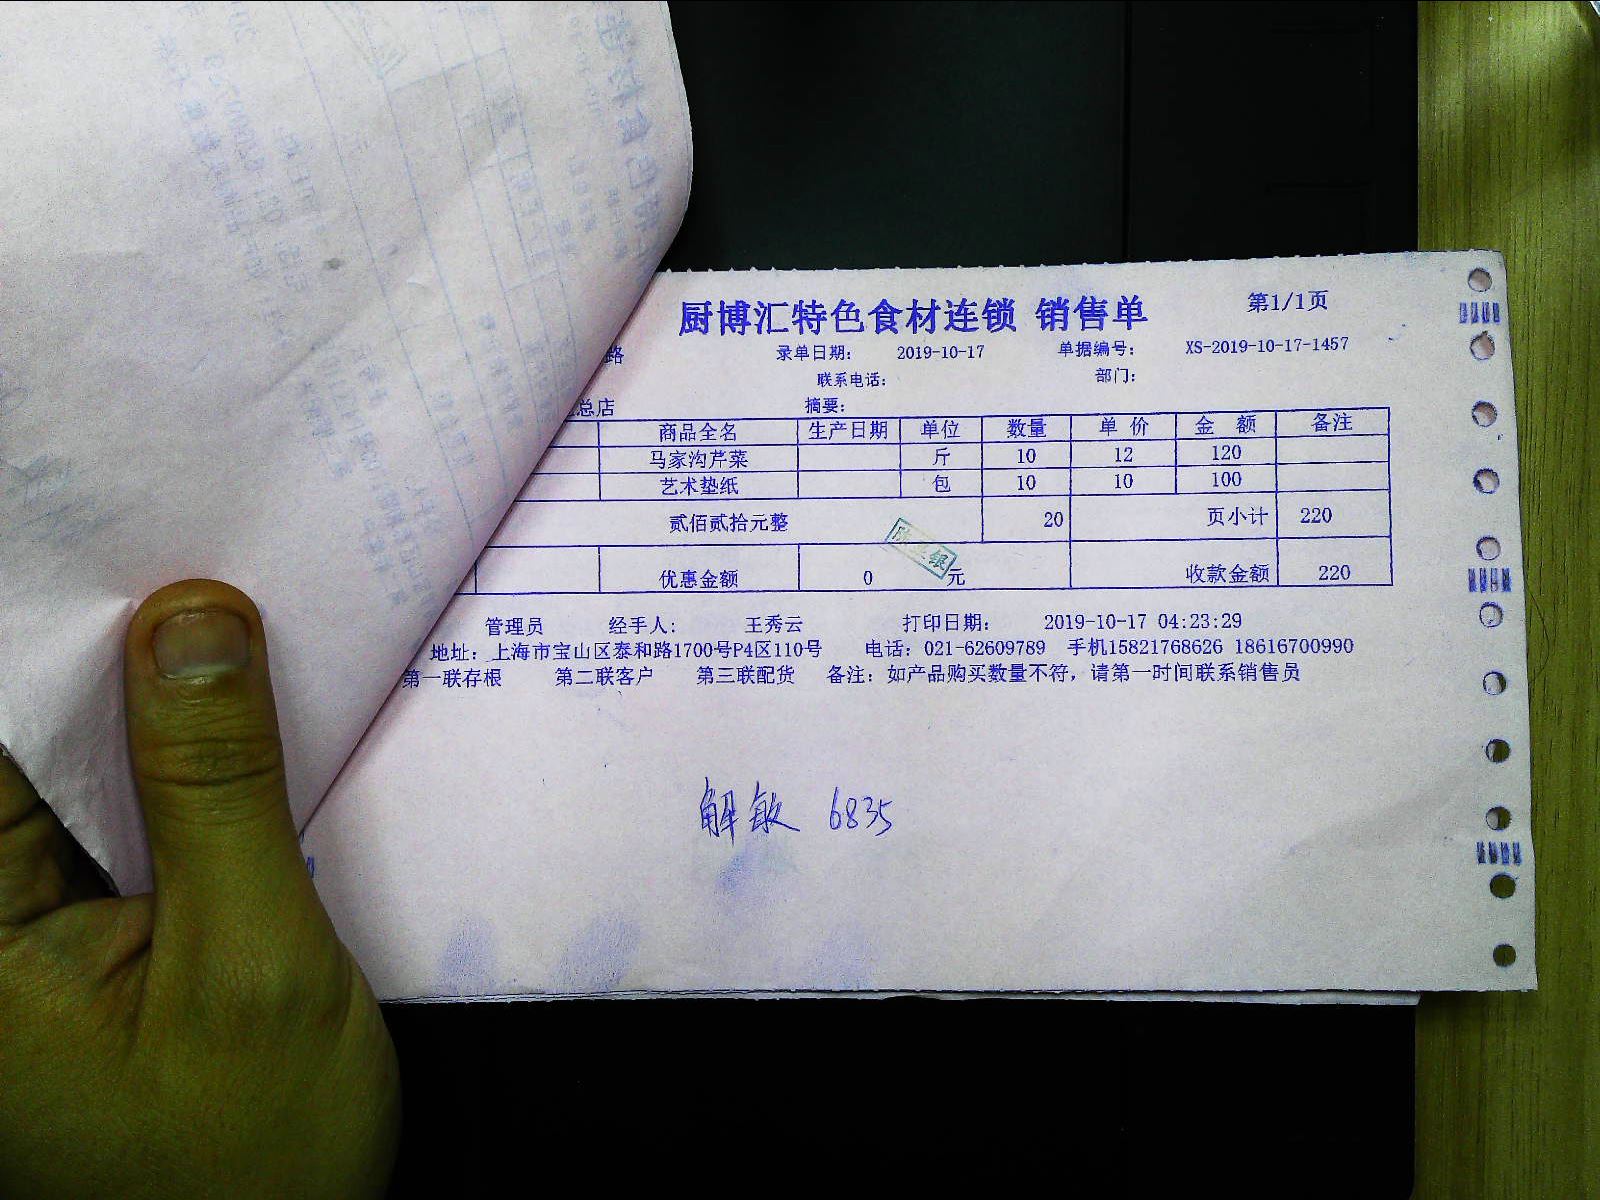 厨博汇特色食材连锁 销售单 第1/1页
路 录单日期： 2019-10-17 单据编号： XS-2019-10-17-1457
联系电话： 部门：
总店 摘要：
商品全名 生产日期 单位 数量 单价 金额 备注
马家沟芹菜 斤 10 12 120
艺术垫纸 包 10 10 100
贰佰贰拾元整 20 页小计 220
优惠金额 0 元 收款金额 220
管理员 经手人： 王秀云 打印日期： 2019-10-17 04:23:29
地址：上海市宝山区泰和路1700号P4区110号 电话：021-62609789 手机15821768626 18616700990
第一联存根 第二联客户 第三联配货 备注：如产品购买数量不符，请第一时间联系销售员
解敏 6835